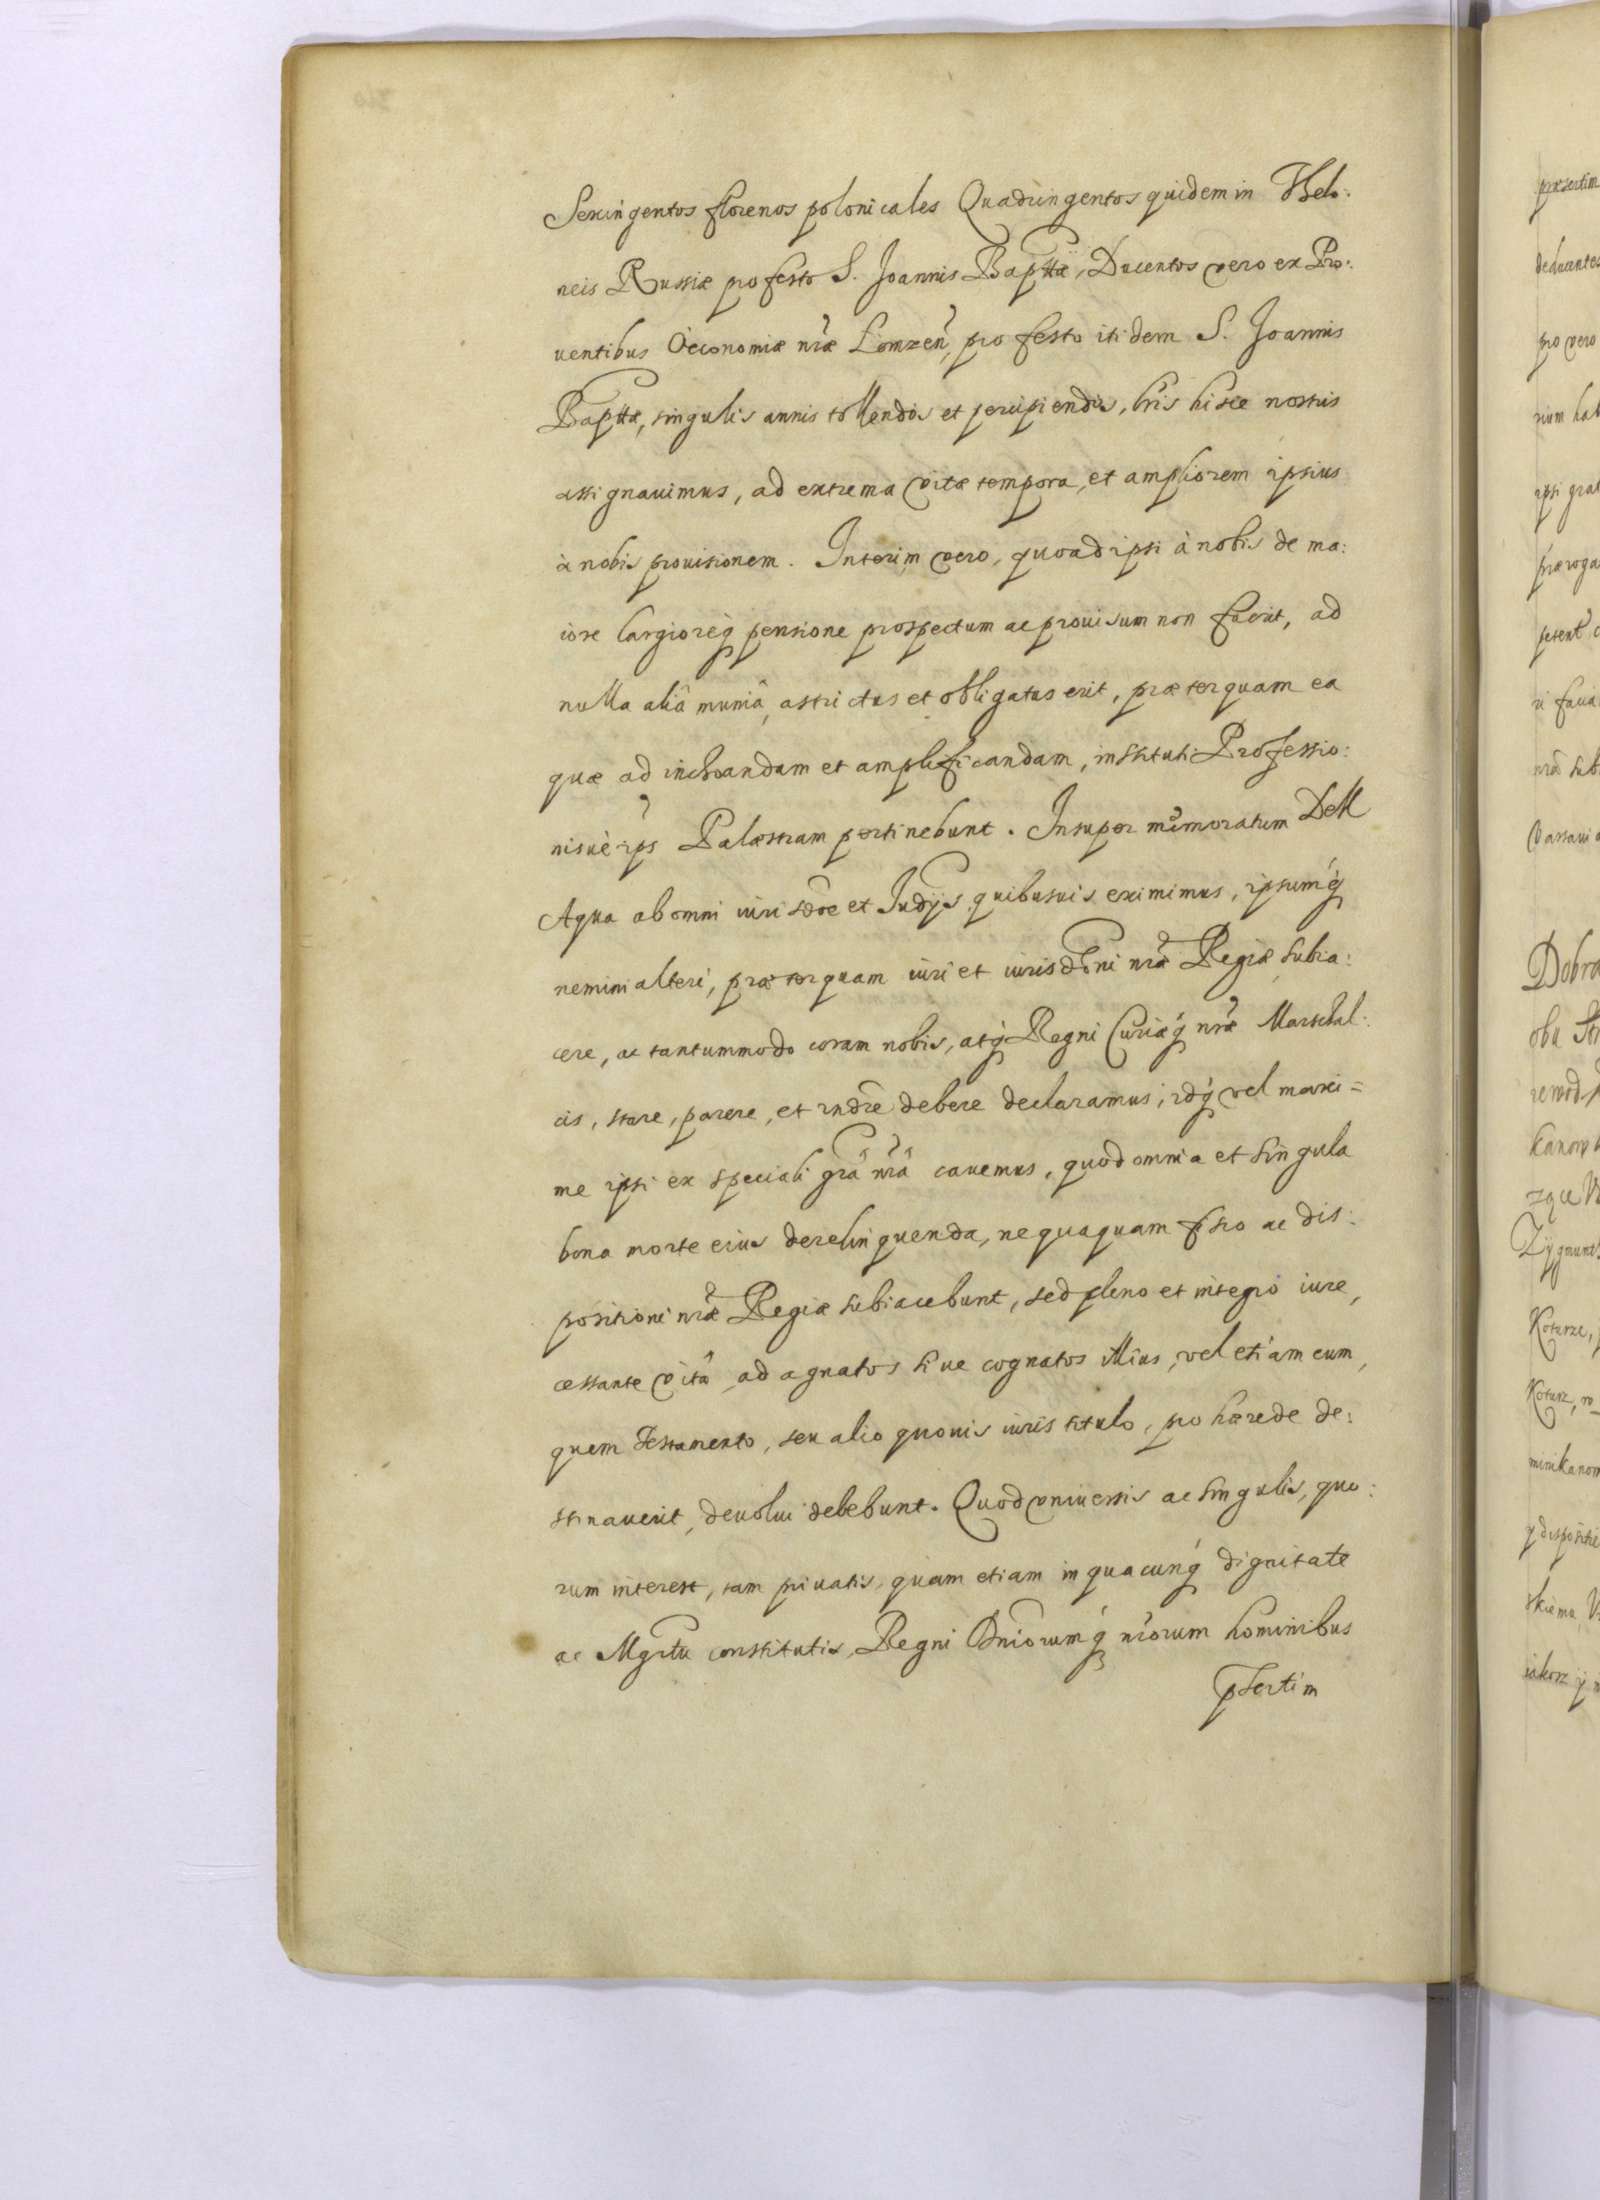 Sexingentos florenos polonicales Quadringentos quidem in Thelo:
neis Russiæ pro festo S. Joannis Bapttæ, Ducentos vero ex Pro:
uentibus Oeconomiæ nræ Lomzen̄, pro festo itidem S. Joannis
Bapttæ, singulis annis tollendos et percipiendos, lr̄is hisce nostris
assignauimus, ad extrema vitæ tempora, et ampliorem ipsius
à nobis prouisionem. Interim vero, quoad ipsi à nobis de ma:
iore largioréq pensione prospectum ac prouisum non fuerit, ad
nulla aliâ muniâ, astrictus et obligatus erit, præterquam ea
quæ ad inchoandam et amplificandam, instituti Professio:
nisuè ips Palæstram pertinebunt. Insuper memoratum Dell
Aqua ab omni iurisdōe et Judijs quibusuis eximimus, ipsumq́
nemini alteri, præterquam iuri et iurisdōni nræ Regiæ subia:
cere, ac tantummodo coram nobis, atq́ Regni Curiæq́ nræ Marschal:
cis, stare, parere, et rndr̄e debere declaramus, idq́ vel maxi=
me ipsi ex speciali grâ nrâ cauemus, quod omnia et singula
bona morte eius derelinquenda, nequaquam fisco ac dis:
positioni nræ Regiæ subiacebunt, sed pleno et integro iure,
cessante vitâ, ad agnatos siue cognatos illius, vel etiam eum,
quem Testamento, seu alio quouis iuris titulo, pro hærede de:
stinauerit, deuolui debebunt. Quod vniuersis ac singulis, quo:
rum interest, tam priuatis, quam etiam in quacunq́ dignitate
ac Mgrtu constitutis, Regni Dniorumq́ nrorum hominibus
psertim
præsertim
pro vero
Dobra
Zygmunt
Koturze,
Koturz,